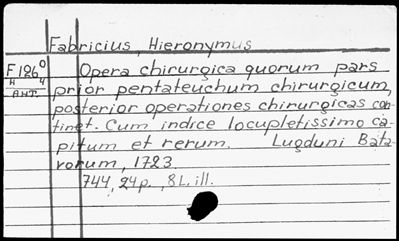 Fabricius, Hieronymus
F1260 Opera chirurgica quorum pars
H 4 prior pentateuchum chirurgicum,
Ant. posterior operationes chirurgicas con-
tinet. Cum indice locupletissimo ca-
pitum et rerum. Lugduni Bata-
vorum, 1723
744, 24p., 8 L. ill.